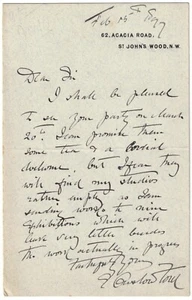 Feb. 18th 1897
62, ACACIA ROAD.
ST JOHN'S WOOD, N.W.
Dear Sir
I shall be pleased
to see your party on March
20th I can promise them
some tea & a cordial
welcome, but I fear they
will find my studios
rather empty as I am
sending works to nine
Exhibitions which will
leave very little besides
the work actually in progress
faithfully yours
E. Onslow Ford